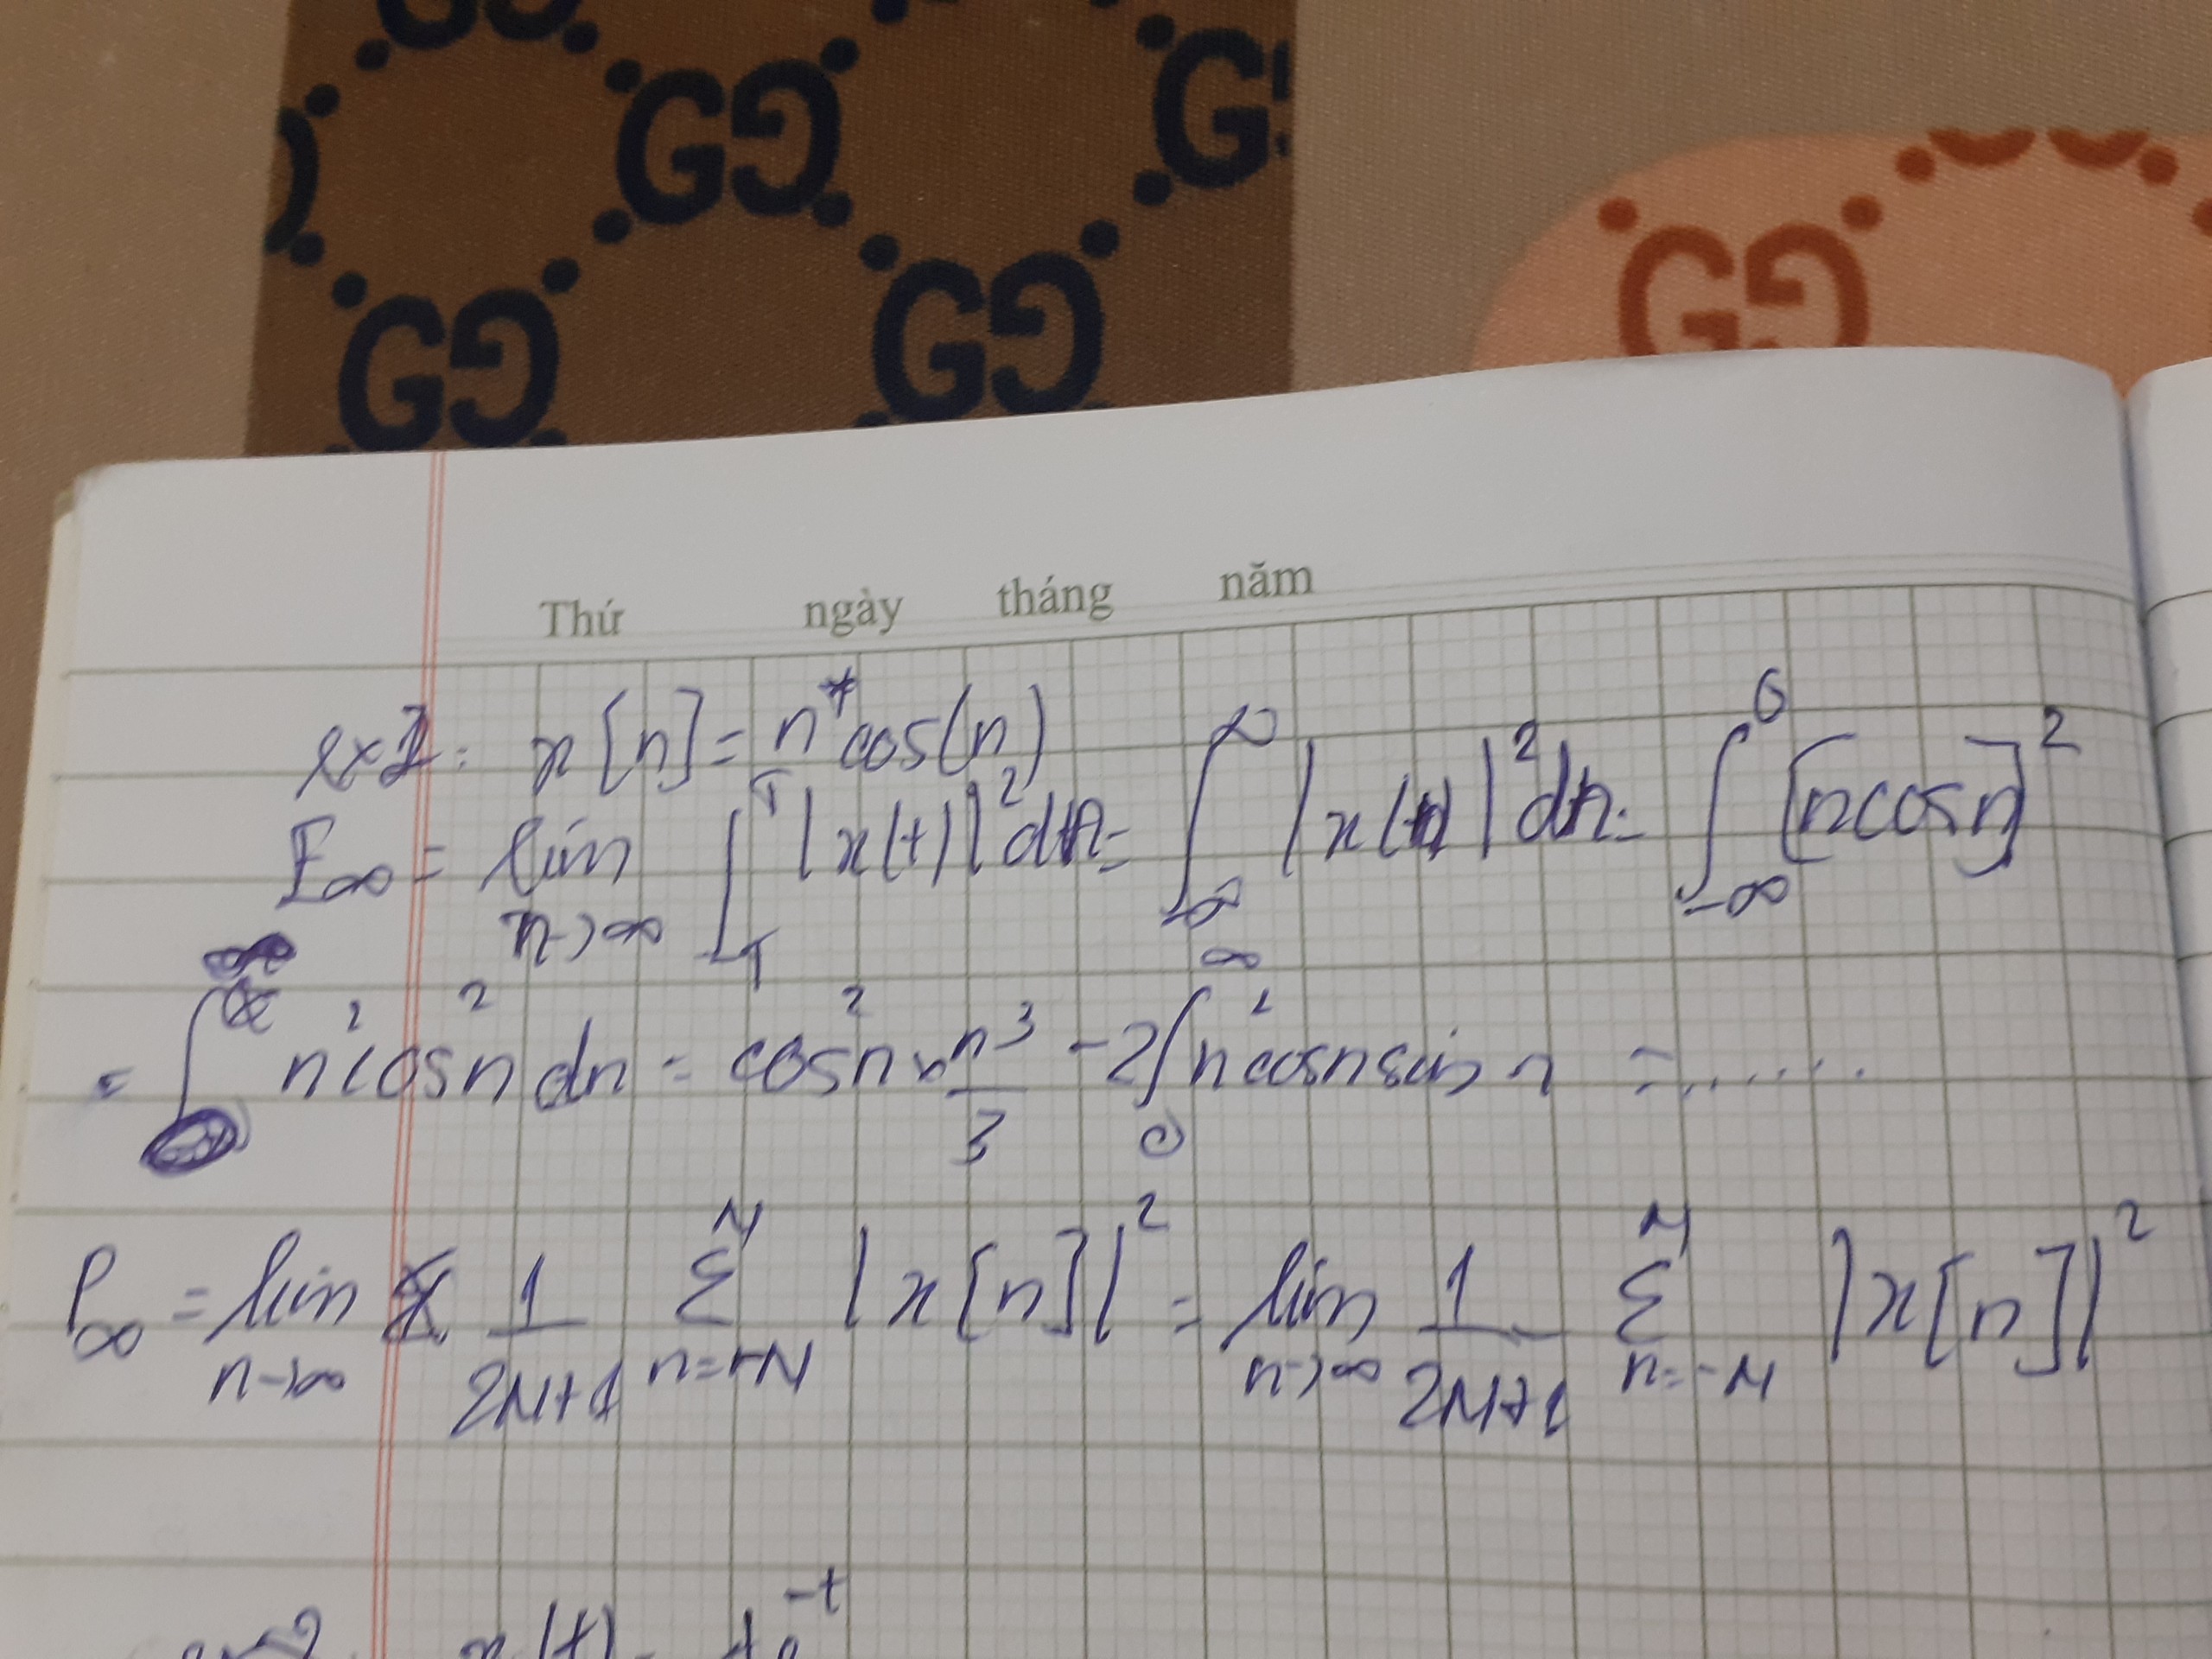 GG GG G
GG GG GG
Thứ ngày tháng năm
ex1: x[n] = n*cos(n)
E∞ = lim n→∞ ∫_{-T}^{T} |x(t)|² dn = ∫_{-∞}^{∞} |x(n)|² dn = ∫_{-∞}^{6} [n cos n]²
= ∫ n² cos² n dn = cos² n × n³/3 - 2∫_{0}^{∞} n² cos n sin n = ......
P∞ = lim n→∞ 1/(2N+1) Σ_{n=-N}^{N} |x[n]|² = lim n→∞ 1/(2N+1) Σ_{n=-N}^{N} |x[n]|²
x(t) = te^{-t}